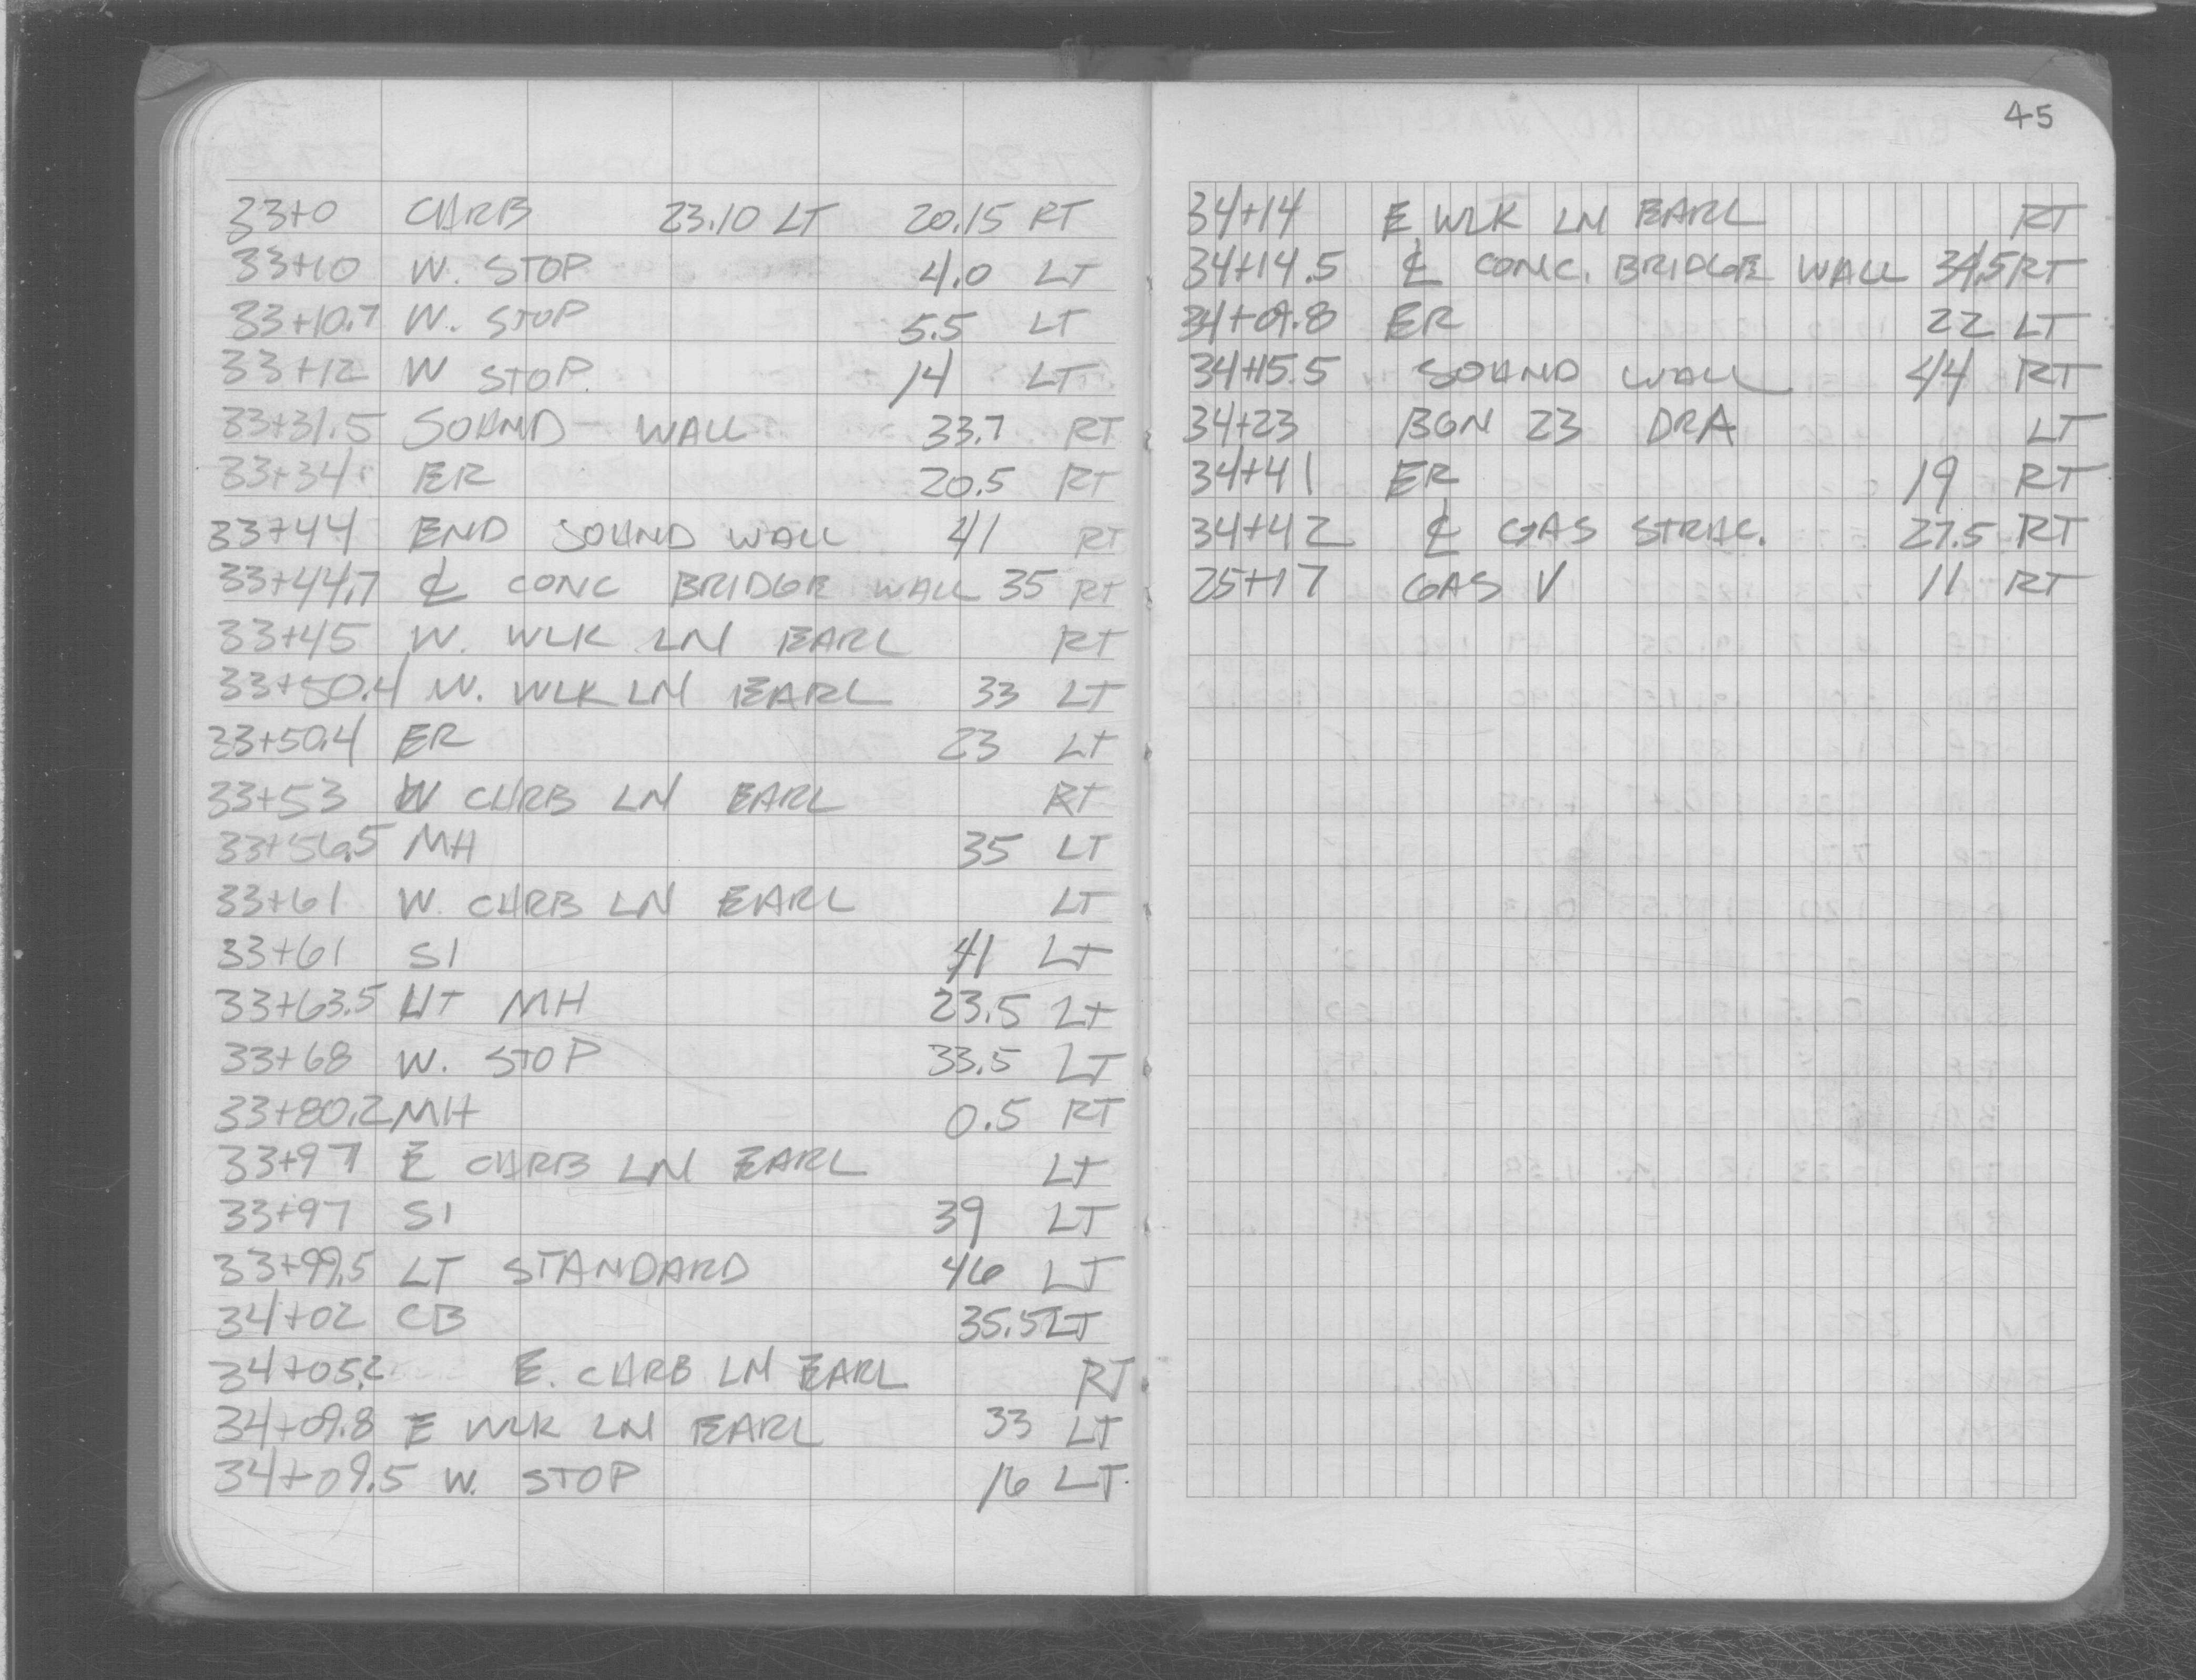 33+0 CURB 23.10 LT 20.15 RT
33+10 W. STOP 4.0 LT
33+10.7 W. STOP 5.5 LT
33+12 W STOP. 14 LT
33+31.5 SOUND WALL 33.7 RT
33+34 ER 20.5 RT
33+44 END SOUND WALL 41 RT
33+44.7 ℄ CONC BRIDGE WALL 35 RT
33+45 W. WLK LN EARL RT
33+50.4 W. WLK LN EARL 33 LT
33+50.4 ER 23 LT
33+53 W CURB LN EARL RT
33+56.5 MH 35 LT
33+61 W. CURB LN EARL LT
33+61 SI 41 LT
33+63.5 UT MH 23.5 LT
33+68 W. STOP 33.5 LT
33+80.2 MH 0.5 RT
33+97 E CURB LN EARL LT
33+97 SI 39 LT
33+99.5 LT STANDARD 46 LT
34+02 CB 35.5 LT
34+05.2 E. CURB LN EARL RT
34+09.8 E WLK LN EARL 33 LT
34+09.5 W. STOP 16 LT.
45
34+14 E WLK LN EARL RT
34+14.5 ℄ CONC. BRIDGE WALL 34.5 RT
34+09.8 ER 22 LT
34+15.5 SOUND WALL 44 RT
34+23 BGN 23 DRA LT
34+41 ER 19 RT
34+42 ℄ GAS STRUC. 27.5 RT
25+17 GAS V 11 RT